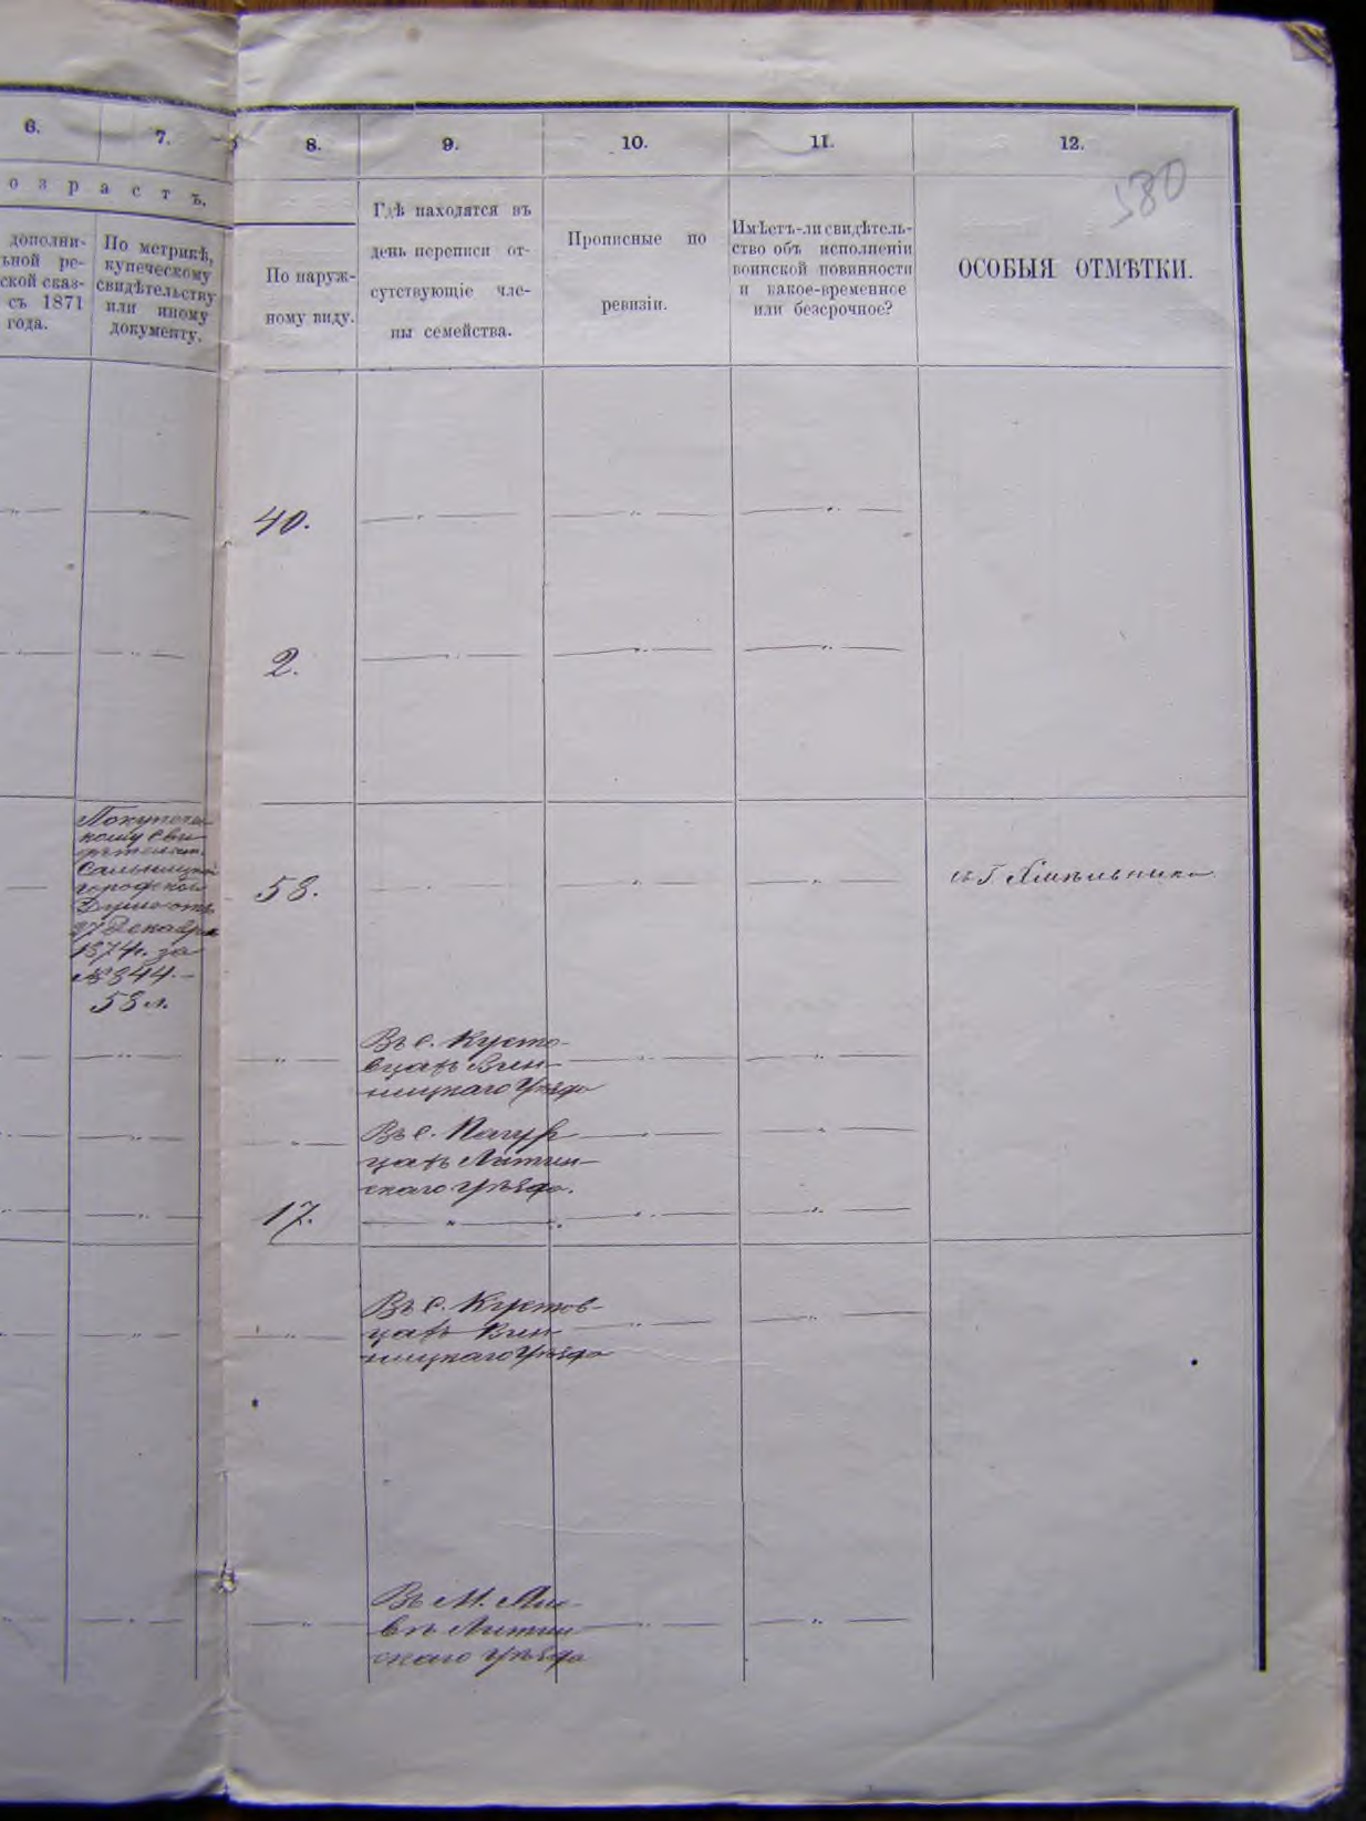 6.
7.
8.
9.
10.
11.
12.
580
озрастъ.
дополни-
ьной ре-
ской сказ-
съ 1871
года.
По метрикѣ,
купеческому
свидѣтельству
или иному
документу.
По наруж-
ному виду.
Гдѣ находятся въ
день переписи от-
сутствующіе чле-
ны семейства.
Прописные по
ревизіи.
Имѣетъ-ли свидѣтель-
ство объ исполненіи
воинской повинности
и какое-временное
или безсрочное?
ОСОБЫЯ ОТМѢТКИ.
40.
2.
По купечес-
кому сви-
дѣтельст.
Сальницкой
городской
Думы отъ
27 Декабря
1874г. за
№ 344.-
58 л.
58.
въ Г Хмѣльника
Въ с. Кусто-
вцахъ Вин-
ницкаго Уѣзда
Въ с. Пагур
цахъ Литин-
скаго Уѣзда.
17.
Въ с. Кустов-
цахъ Вин-
ницкаго Уѣзда
Въ М.
Литин
скаго Уѣзда